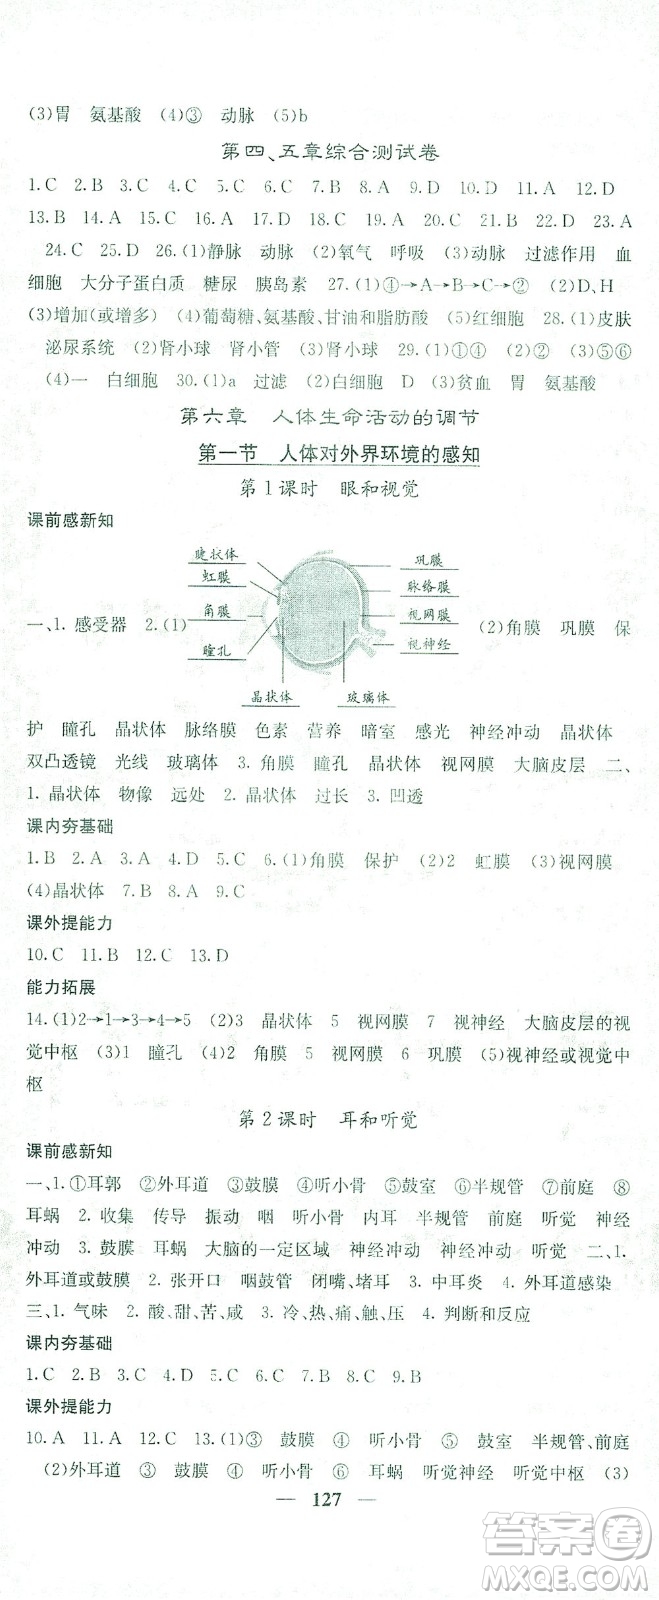 (3)胃 氨基酸 (4)③ 动脉 (5)b
第四、五章综合测试卷
1.C 2.B 3.C 4.C 5.C 6.C 7.B 8.A 9.D 10.D 11.A 12.D
13.B 14.A 15.A 16.C 17.A 18.C 19.A 20.D 21.C 22.D 23.A
24.C 25.D 26.(1)静脉 动脉 (2)氧气 呼吸 (3)动脉 过滤作用 血
细胞 大分子蛋白质 糖尿 胰岛素 27.(1)④→A→B→C→② (2)D、H
(3)增加(或增多) (4)葡萄糖、氨基酸、甘油和脂肪酸 (5)红细胞 28.(1)皮肤
泌尿系统 (2)肾小球 肾小管 (3)肾小球 29.(1)①④ (2)② (3)⑤⑥
(4)一 白细胞 30.(1)a 过滤 (2)红细胞 D (3)贫血 胃 氨基酸
第六章 人体生命活动的调节
第一节 人体对外界环境的感知
第1课时 眼和视觉
课前感新知
睫状体 巩膜
虹膜 脉络膜
一、1.感受器 2.(1) 角膜 视网膜 (2)角膜 巩膜 保
瞳孔 视神经
晶状体 玻璃体
护 瞳孔 晶状体 脉络膜 色素 营养 暗室 感光 神经冲动 晶状体
双凸透镜 光线 玻璃体 3.角膜 瞳孔 晶状体 视网膜 大脑皮层 二、
1.晶状体 物像 远处 2.晶状体 过长 3.凹透
课内夯基础
1.B 2.A 3.A 4.A 5.C 6.(1)角膜 保护 (2)2 虹膜 (3)视网膜
(4)晶状体 7.B 8.A 9.C
课外提能力
10.C 11.B 12.C 13.D
能力拓展
14.(1)2→1→3→4→5 (2)3 晶状体 5 视网膜 7 视神经 大脑皮层的视
觉中枢 (3)1 瞳孔 (4)2 角膜 6 巩膜 (5)视神经或视觉中
枢
第2课时 耳和听觉
课前感新知
一、1.①耳郭 ②外耳道 ③鼓膜 ④听小骨 ⑤鼓室 ⑥半规管 ⑦前庭 ⑧
耳蜗 2.收集 传导 振动 咽 听小骨 内耳 半规管 前庭 听觉 神经
冲动 3.鼓膜 耳蜗 大脑的一定区域 神经冲动 听觉神经 听觉 二、1.
外耳道或鼓膜 2.张开口 咽鼓管 闭嘴、堵耳 3.中耳炎 4.外耳道感染
三、1.气味 2.酸、甜、苦、咸 3.冷、热、痛、触、压 4.判断和反应
课内夯基础
1.C 2.B 3.C 4.A 5.D 6.C 7.A 8.C 9.B
课外提能力
10.A 11.A 12.C 13.(1)③ 鼓膜 ④ 听小骨 ⑤ 鼓室 半规管、前庭
(2)外耳道 ③ 鼓膜 ④ 听小骨 ⑥ 耳蜗 听觉神经 听觉中枢 (3)
— 127 —
答案圈
MXQE.COM